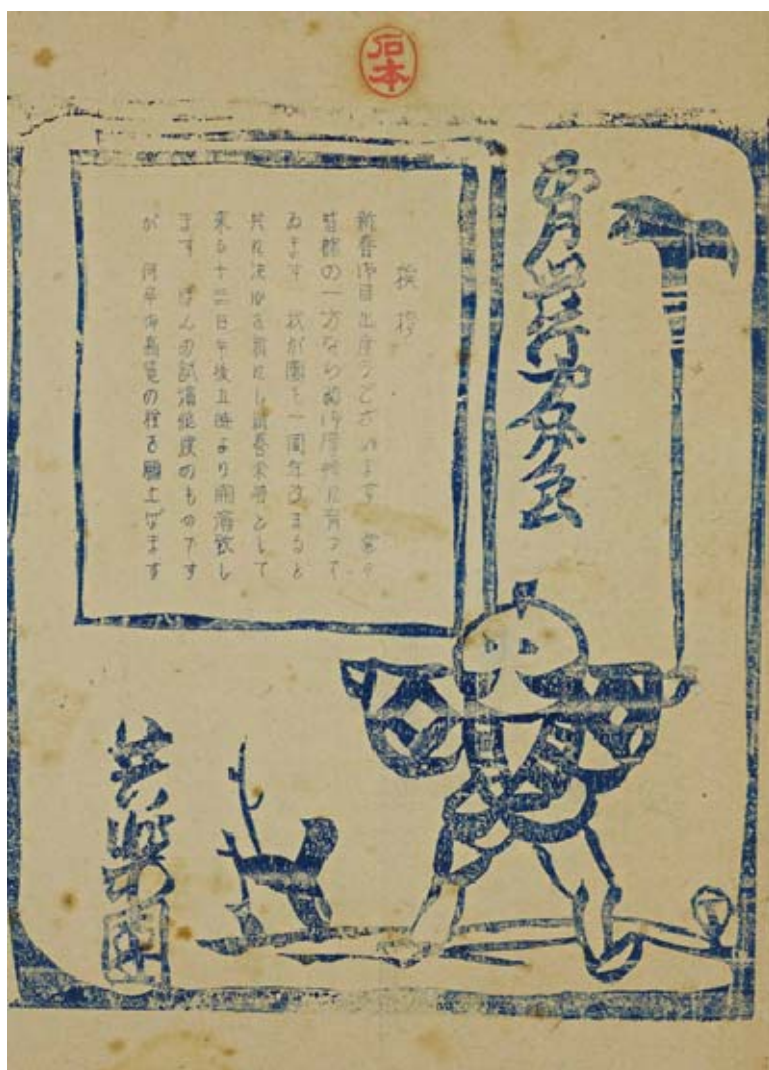 石本
挨拶
新春御目出度うございます 常々
皆様の一方ならぬ御厚情に育って
ゐます 我が團も一周年 まると
共に決心を新にし新春 として
来る十二日午後五時より開演致し
ます ほんの試演程度のものです
が 何卒御高覧の程を願上げます
共楽団